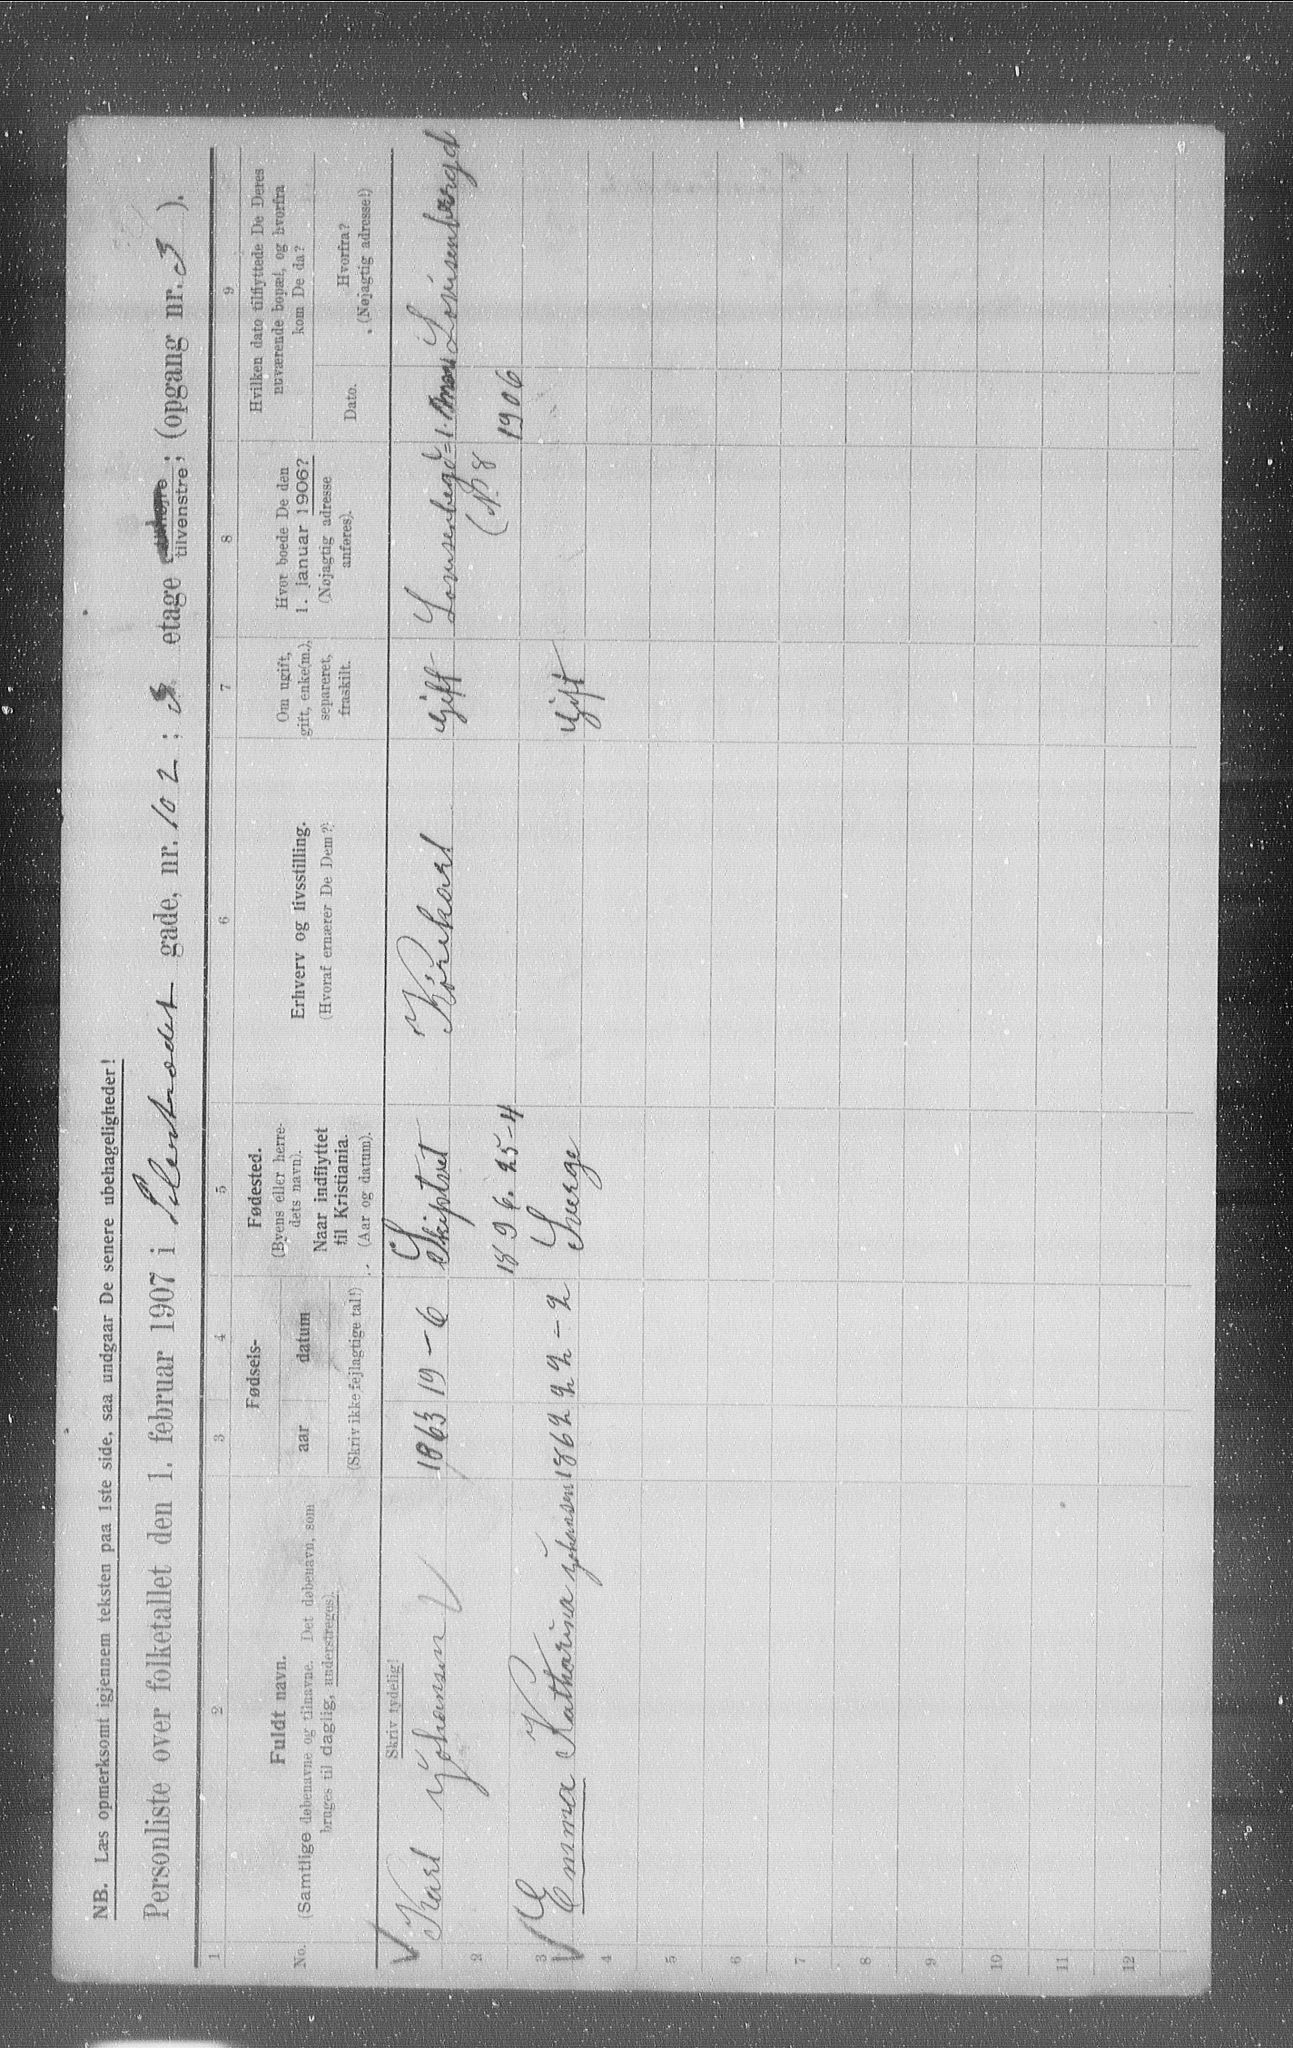 NB. Læs opmerksomt igjennem teksten paa 1ste side, saa undgaar De senere ubehageligheder!
Personliste over folketallet den 1. februar 1907 i gade, nr. 102; 3 etage tilhøjre tilvenstre; (opgang nr. 3).
1 2 3 4 5 6 7 8 9
No.
Fuldt navn.
(Samtlige døbenavne og tilnavne. Det døbenavn, som
bruges til daglig, understreges).
Fødsels-
aar datum
(Skriv ikke fejlagtige tal!)
Fødested.
(Byens eller herre-
dets navn).
Naar indflyttet
til Kristiania.
(Aar og datum).
Erhverv og livsstilling.
(Hvoraf ernærer De Dem?)
Om ugift,
gift, enke(m.),
separeret,
fraskilt.
Hvor boede De den
1. januar 1906?
(Nøjagtig adresse
anføres).
Hvilken dato tilflyttede De Deres
nuværende bopæl, og hvorfra
kom De da?
Dato.
Hvorfra?
(Nøjagtig adresse!)
Skriv tydelig!
Karl Johansen 1863 19-6 Skiptvet Kørekarl Gift 1.
2 1896. 25-4 (N. 8 1906
3 Emma Katharina Johansen 1862 22-2 Sverge Gift
4
5
6
7
8
9
10
11
12